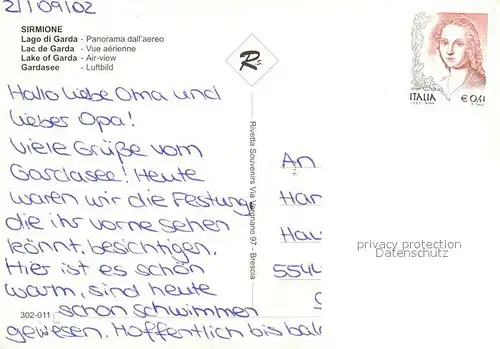 21/09/02
SIRMIONE
Lago di Garda - Panorama dall'aereo
Lac de Garda - Vue aérienne
Lake of Garda - Air-view
Gardasee - Luftbild
Rs.
ITALIA
€ 0,41
Hallo liebe Oma und
lieber Opa!
Viele Grüße vom
Gardasee! Heute
waren wir die Festung
die ihr vorne sehen
könnt, besichtigen.
Hier ist es schön
warm, sind heute
schon schwimmen
gewesen. Hoffentlich bis bal
302-011
Rivetta Souvenirs Via Vergnano 97 - Brescia
An
Har
Hau
554
privacy protection
Datenschutz